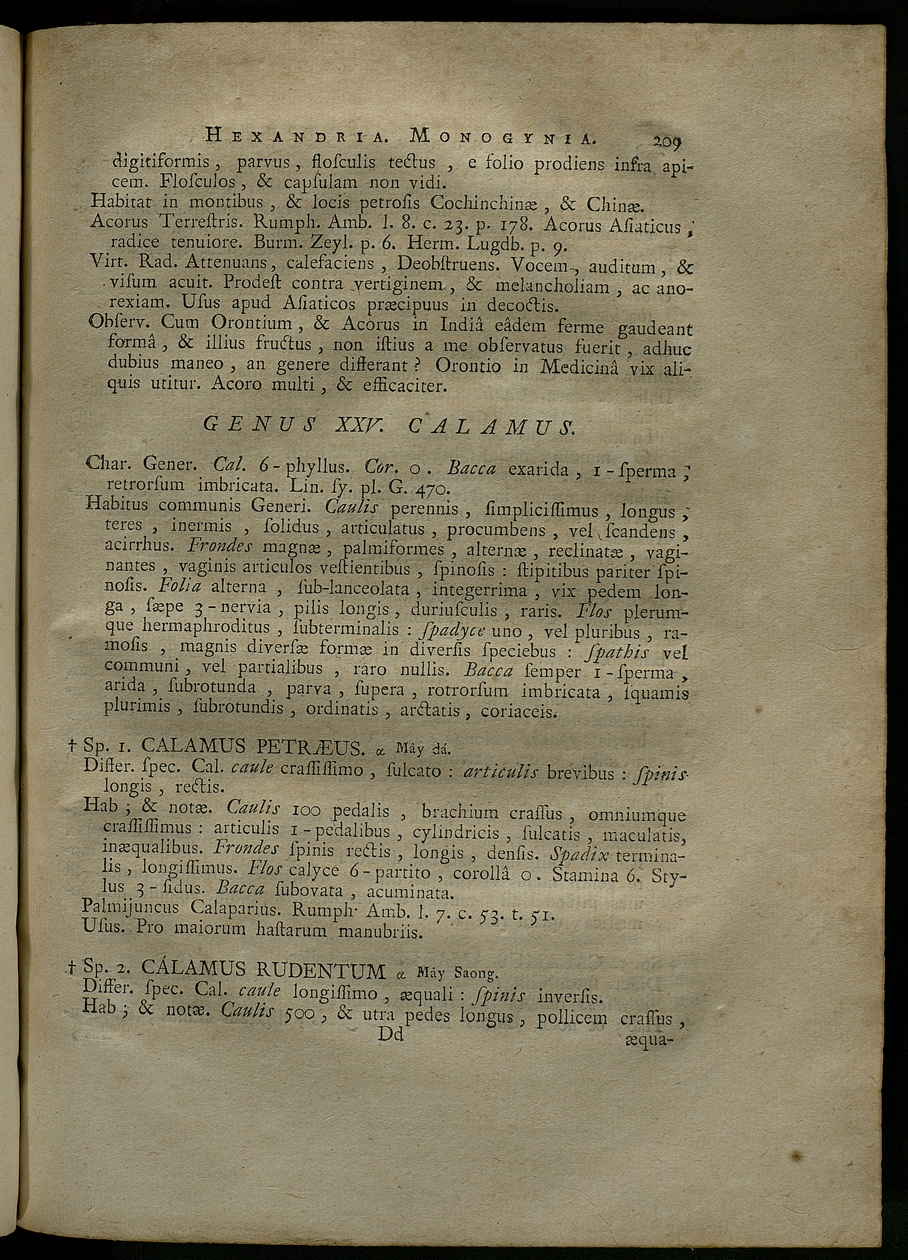 HEXANDRIA. MONOGYNIA. 209
digitiformis, parvus, floſculis tectus, e folio prodiens infra api-
cem. Floſculos, & capſulam non vidi.
Habitat in montibus, & locis petroſis Cochinchinæ, & Chinæ.
Acorus Terreſtris. Rumph. Amb. l. 8. c. 23. p. 178. Acorus Aſiaticus;
radice tenuiore. Burm. Zeyl. p. 6. Herm. Lugdb. p. 9.
Virt. Rad. Attenuans, calefaciens, Deobſtruens. Vocem, auditum, &
viſum acuit. Prodeſt contra vertiginem, & melancholiam, ac ano-
rexiam. Uſus apud Aſiaticos præcipuus in decoctis.
Obſerv. Cum Orontium, & Acorus in Indiâ eâdem ferme gaudeant
formâ, & illius fructus, non iſtius a me obſervatus fuerit, adhuc
dubius maneo, an genere differant? Orontio in Medicinâ vix ali-
quis utitur. Acoro multi, & efficaciter.
GENUS XXV. CALAMUS.
Char. Gener. Cal. 6-phyllus. Cor. 0. Bacca exarida, 1-ſperma;
retrorſum imbricata. Lin. ſy. pl. G. 470.
Habitus communis Generi. Caulis perennis, ſimpliciſſimus, longus;
teres, inermis, ſolidus, articulatus, procumbens, vel ſcandens,
acirrhus. Frondes magnæ, palmiformes, alternæ, reclinatæ, vagi-
nantes, vaginis articulos veſtientibus, ſpinoſis: ſtipitibus pariter ſpi-
noſis. Folia alterna, ſub-lanceolata, integerrima, vix pedem lon-
ga, ſæpe 3-nervia, pilis longis, duriuſculis, raris. Flos plerum-
que hermaphroditus, ſubterminalis: ſpadyce uno, vel pluribus, ra-
moſis, magnis diverſæ formæ in diverſis ſpeciebus: ſpathis vel
communi, vel partialibus, raro nullis. Bacca ſemper 1-ſperma,
arida, ſubrotunda, parva, ſupera, rotrorſum imbricata, ſquamis
plurimis, ſubrotundis, ordinatis, arctatis, coriaceis.
† Sp. 1. CALAMUS PETRÆUS. α Mây dá.
Differ. ſpec. Cal. caule craſſiſſimo, ſulcato: articulis brevibus: ſpinis
longis, rectis.
Hab; & notæ. Caulis 100 pedalis, brachium craſſus, omniumque
craſſiſſimus: articulis 1-pedalibus, cylindricis, ſulcatis, maculatis,
inæqualibus. Frondes ſpinis rectis, longis, denſis. Spadix termina-
lis, longiſſimus. Flos calyce 6-partito, corollâ 0. Stamina 6. Sty-
lus 3-fidus. Bacca ſubovata, acuminata.
Palmijuncus Calaparius. Rumph. Amb. l. 7. c. 53. t. 51.
Uſus. Pro maiorum haſtarum manubriis.
† Sp. 2. CÁLAMUS RUDENTUM α Mây Saong.
Differ. ſpec. Cal. caule longiſſimo, æquali: ſpinis inverſis.
Hab; & notæ. Caulis 500, & utra pedes longus, pollicem craſſus,
Dd æqua-